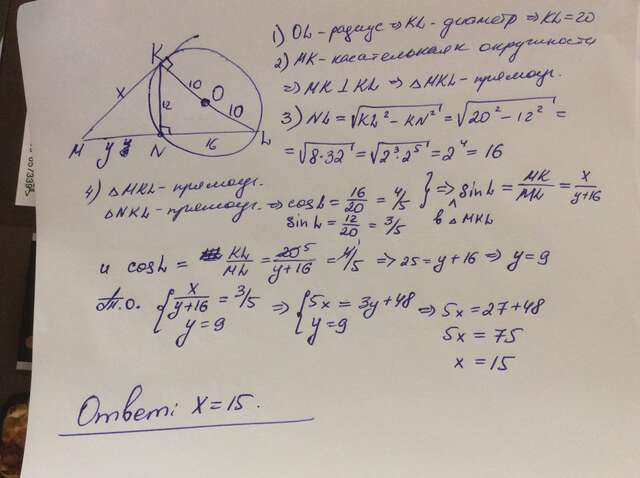 1) OL - радиус ⇒ KL - диаметр ⇒ KL = 20
2) MK - касательная к окружности
⇒ MK ⊥ KL ⇒ △MKL - прямоуг.
3) NL = √(KL² - KN²) = √(20² - 12²) =
= √(8·32) = √(2³·2⁵) = 2⁴ = 16
K
X
10
O
12
10
M
y
N
16
L
4) △MKL - прямоуг.
△NKL - прямоуг. ⇒ cosL = 16/20 = 4/5 } ⇒ sinL = MK/ML = x/(y+16)
sinL = 12/20 = 3/5
в △MKL
и cosL = KL/ML = 20⁵/(y+16) = 4¹/5 ⇒ 25 = y + 16 ⇒ y = 9
Т.о. { x/(y+16) = 3/5 ⇒ { 5x = 3y + 48 ⇒ 5x = 27 + 48
y = 9 y = 9 5x = 75
x = 15
Ответ: X = 15.